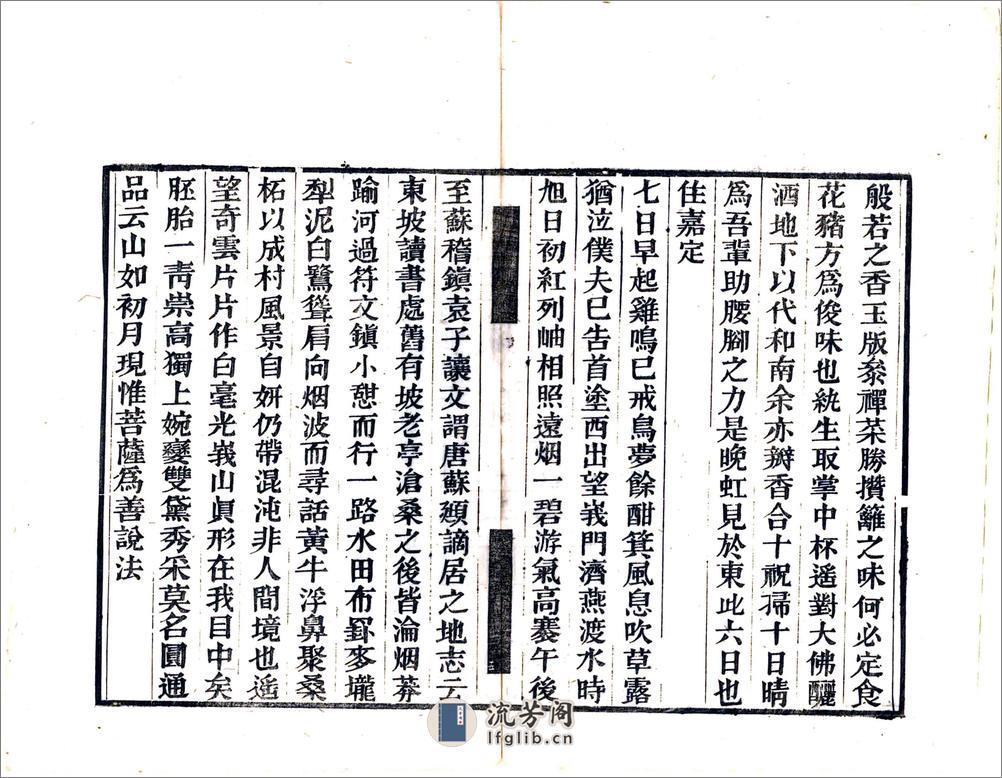 般若之香玉版叅禪菜勝攢籬之味何必定食
花豬方爲俊味也統生取掌中杯遥對大佛釃
酒地下以代和南余亦瓣香合十祝掃十日晴
爲吾輩助腰腳之力是晚虹見於東此六日也
住嘉定
七日早起雞鳴巳戒鳥夢餘酣箕風息吹草露
猶泣僕夫巳告首塗西出望峩門濟燕渡水時
旭日初紅列岫相照遠烟一碧游氣高褰午後
至蘇稽鎭袁子讓文謂唐蘇頲謫居之地志云
東坡讀書處舊有坡老亭滄桑之後皆淪烟莽
踰河過符文鎭小憩而行一路水田布罫麥壠
犁泥白鷺聳肩向烟波而尋話黃牛浮鼻聚桑
柘以成村風景自妍仍帶混沌非人間境也遥
望奇雲片片作白毫光峩山眞形在我目中矣
胚胎一靑崇高獨上婉孌雙黛秀采莫名圓通
品云山如初月現惟菩薩爲善說法
流芳阁
lfglib.cn